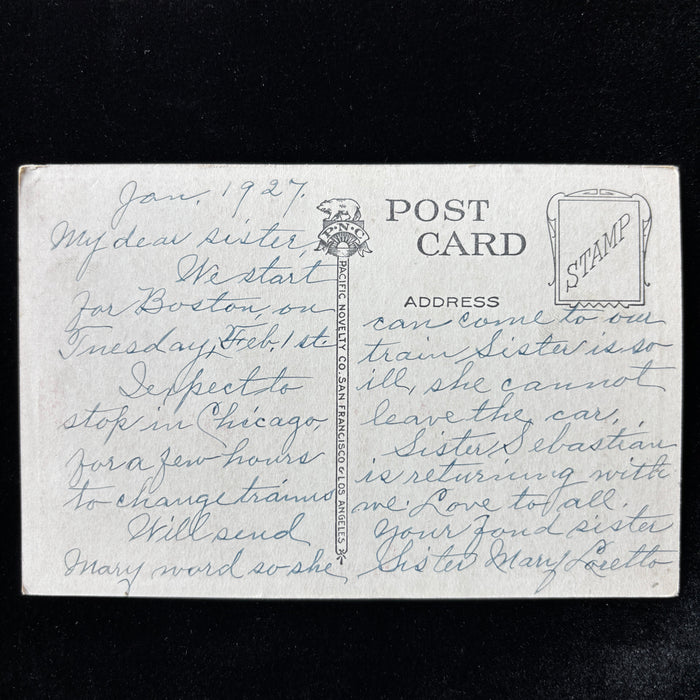 Jan. 1927.
My dear sister,
We start
for Boston, on
Tuesday, Feb. 1st.
I expect to
stop in Chicago,
for a few hours
to change trains
Will send
Mary word so she
P·N·C
PACIFIC NOVELTY CO. SAN FRANCISCO & LOS ANGELES
POST
CARD
STAMP
ADDRESS
can come to our
train Sister is so
ill, she cannot
leave the car,
Sister Sebastian
is returning with
me. Love to all.
Your fond sister
Sister Mary Loretto.